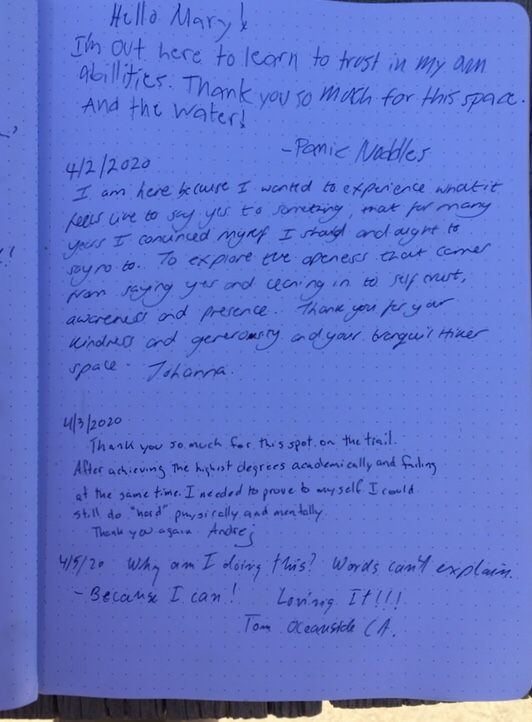 Hello Mary!
I'm out here to learn to trust in my own
abilities. Thank you so much for this space.
And the water!
- Panic Noodles
4/2/2020
I am here because I wanted to experience what it
feels like to say yes to something, that for many
years I convinced myself I should and ought to
say no to. To explore the openess that comes
from saying yes and leaning in to self trust,
awareness and presence. Thank you for your
kindness and generousity and your tranquil Hiker
space. Johanna.
4/3/2020
Thank you so much for this spot on the trail.
After achieving the highest degrees academically and failing
at the same time. I needed to prove to myself I could
still do "hard" physically and mentally.
Thank you again Andrej
4/5/20 Why am I doing this? Words can't explain.
- Because I can! Loving It!!!
Tom Oceanside CA.